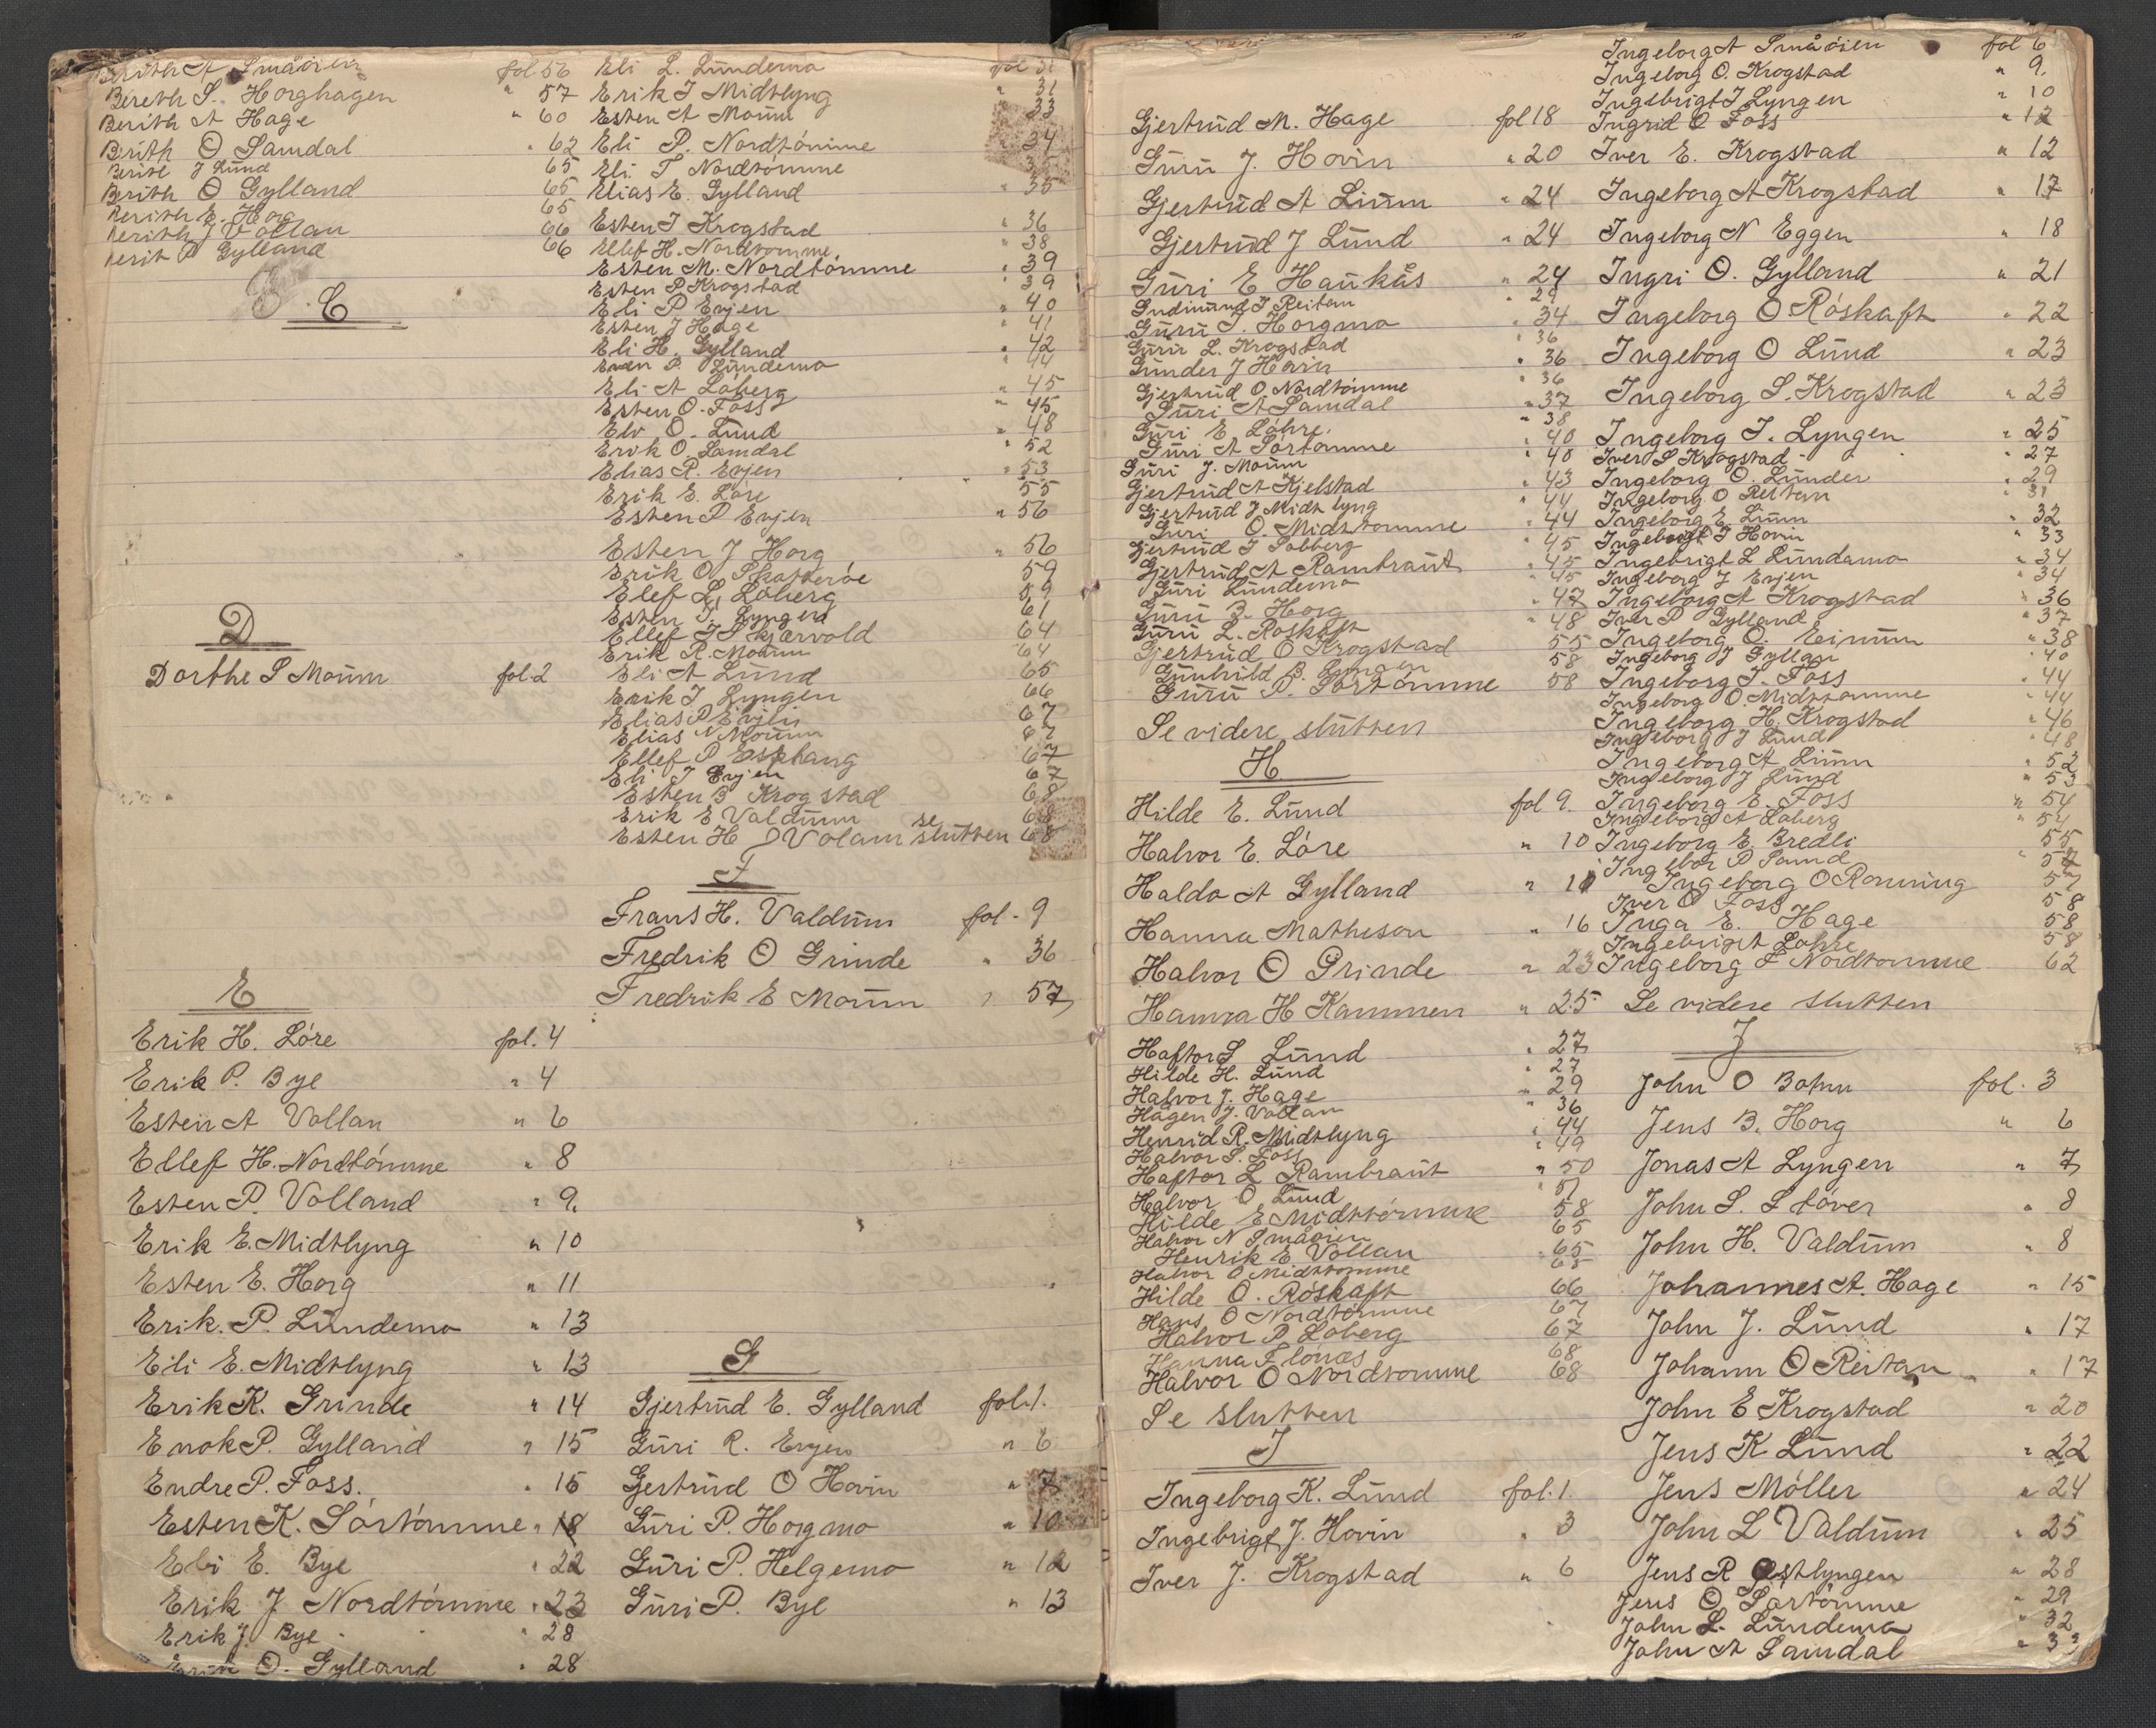 Berith A Småöien fol 56
Bereth S. Horghagen " 57
Berith A Hage " 60
Brith O Samdal " 62
Berite J Lund 65
Brith O Gylland 65
Berith E. Hog 65
Berith J Vollan 66
Berit P Gylland 66
C
D
Dorthe S Moum fol. 2
E
Erik H. Löre fol. 4
Erik P. Bye " 4
Esten A Vollan " 6
Ellef H. Nordtömme " 8
Esten P. Volland " 9.
Erik E. Midtlyng " 10
Esten E. Horg " 11
Erik. P. Lundemo " 13
Eli E. Midtlyng " 13
Erik K. Grinde " 14
Enok P. Gylland " 15
Endre P. Foss. " 15
Esten K. Sörtömme " 18
Eli E. Bye " 22
Erik J Nordtömme " 23
Erik J. Bye " 28
O. Gylland " 28
Eli L. Lundemo fol 31
Erik J Midtlyng " 31
Esten A Moum " 33
Eli P. Nordtömme " 34
Eli T Nordtömme 35
Elias E. Gylland " 35
Esten J Krogstad " 36
Ellef H. Nordtömme " 38
Esten M. Nordtömme " 39
Esten P Krogstad " 39
Eli P Evjen " 40
Esten J Hage " 41
Eli H. Gylland " 42
Even P. Lundemo " 44
Eli A Loberg " 45
Esten O. Foss " 45
Elv O. Lund " 48
Erik O. Samdal " 52
Elias R. Evjen " 53
Erik E. Löre 55
Esten P Evjen " 56
Esten J Horg " 56
Erik O Skatteröe 59
Elef L. Loberg 59
Esten J. Lyngen 61
Ellef J Skjærvold 64
Erik R. Moum 64
Eli A Lund 65
Erik J Lyngen 66
Elias P Evjen 67
Elias N Moum 67
Ellef P Esphaug 67
Eli J Evjen 67
Esten B Krogstad 68
Erik E Valdum 68
Esten H Volam se slutten 68
F
Frans H. Valdum fol. 9
Fredrik O Grinde " 36
Fredrik E Moum " 57
G
Gjertrud E. Gylland fol. 1.
Guri R. Evjen " 6
Gertrud O Hovin " 7
Guri P. Horgmo " 10
Guri P. Helgemo " 12
Guri P. Bye " 13
Gjertrud M. Hage fol 18
Guru J. Hovin " 20
Gjertrud A Lium " 24
Gjertrud J Lund " 24
Guri E Haukås " 24
Gudmund J Reitan " 29
Guru J. Horgmo " 34
Guru L. Krogstad " 36
Gunder J Hovin " 36
Gjertrud O Nordtömme " 36
Guri A Samdal " 37
Guri E Löhre. " 38
Guri A Sörtomme " 40
Guri J. Moum " 40
Gjertrud A Kjelstad " 43
Gjertrud J Midtlyng " 44
Guri O. Midttomme " 44
Gjertrud J Solberg " 45
Gjertrud A Rambraut " 45
Guri Lundemo " 45
Guru B. Horg " 47
Guru L. Roskaft " 48
Gjertrud O Krogstad 55
Gunhild B. Lyngen 58
Guru P. Sörtömme 58
Se videre slutten
H
Hilde E. Lund fol 9.
Halvor E. Löre " 10
Haldo A Gylland " 11
Hanna Matheson " 16
Halvor O Grinde " 23
Hanna H Kammen " 25
Haftor S Lund " 27
Hilde H. Lund " 27
Halvor J. Hage " 29
Hagen J. Vollan " 36
Henrid R. Midtlyng " 44
Halvor S. Foss " 49
Haftor L Rambraut " 50
Halvor O Lund " 51
Hilde E Midttömme 58
Halvor N Småoien 65
Henrik E Vollan " 65
Halvor O Midttomme 65
Hilde O. Röskaft 66
Hans O Nordtömme 67
Halvor P Loberg 67
Hanna Flönæs 68
Halvor O Nordtomme 68
Se slutten
I
Ingeborg K. Lund fol. 1.
Ingebrigt J. Hovin " 3
Iver J. Krogstad " 6
Ingeborg A Småöien fol 6
Ingeborg O. Krogstad " 9.
Ingebrigt J Lyngen " 10
Ingrid O Foss " 12
Iver E. Krogstad " 12
Ingeborg A Krogstad " 17
Ingeborg N Eggen " 18
Ingri O. Gylland " 21
Ingeborg O Röskaft " 22
Ingeborg O Lund " 23
Ingeborg S. Krogstad " 23
Ingeborg J. Lyngen " 25
Iver S Krogstad " 27
Ingeborg O. Lunder " 29
Ingeborg O Reitan " 31
Ingeborg E. Lium " 32
Ingebrigt J Hovin " 33
Ingebrigt L Lundamo " 34
Ingeborg J Evjen " 34
Ingeborg A Krogstad " 36
Iver P Gylland " 37
Ingeborg O. Eimum " 38
Ingeborg J Gyllan " 40
Ingeborg J. Foss " 44
Ingeborg O. Midttomme " 44
Ingeborg H. Krogstad " 46
Ingeborg J Lund " 48
Ingeborg A Lium " 52
Ingeborg J Lund " 53
Ingeborg E. Foss " 54
Ingeborg A Loberg " 54
Ingeborg E Bredli 55
Ingebor P Sund 57
Ingeborg O Ronning 57
Iver O Foss 58
Inga E. Hage 58
Ingebrigt Lohre 58
Ingeborg F Nordtomme 62
Se videre slutten
J
John O Bohn fol. 3
Jens B. Horg " 6
Jonas A Lyngen " 7
John S. Stöver " 8
John H. Valdum " 8
Johannes A. Hage " 15
John J. Lund " 17
Johann O Reitan " 17
John E Krogstad " 20
Jens K Lund " 22
Jens Möller " 24
John L Valdum " 25
Jens R Östlyngen " 28
Jens O Sörtömme " 29
John L. Lundemo " 32
John A Samdal " 33